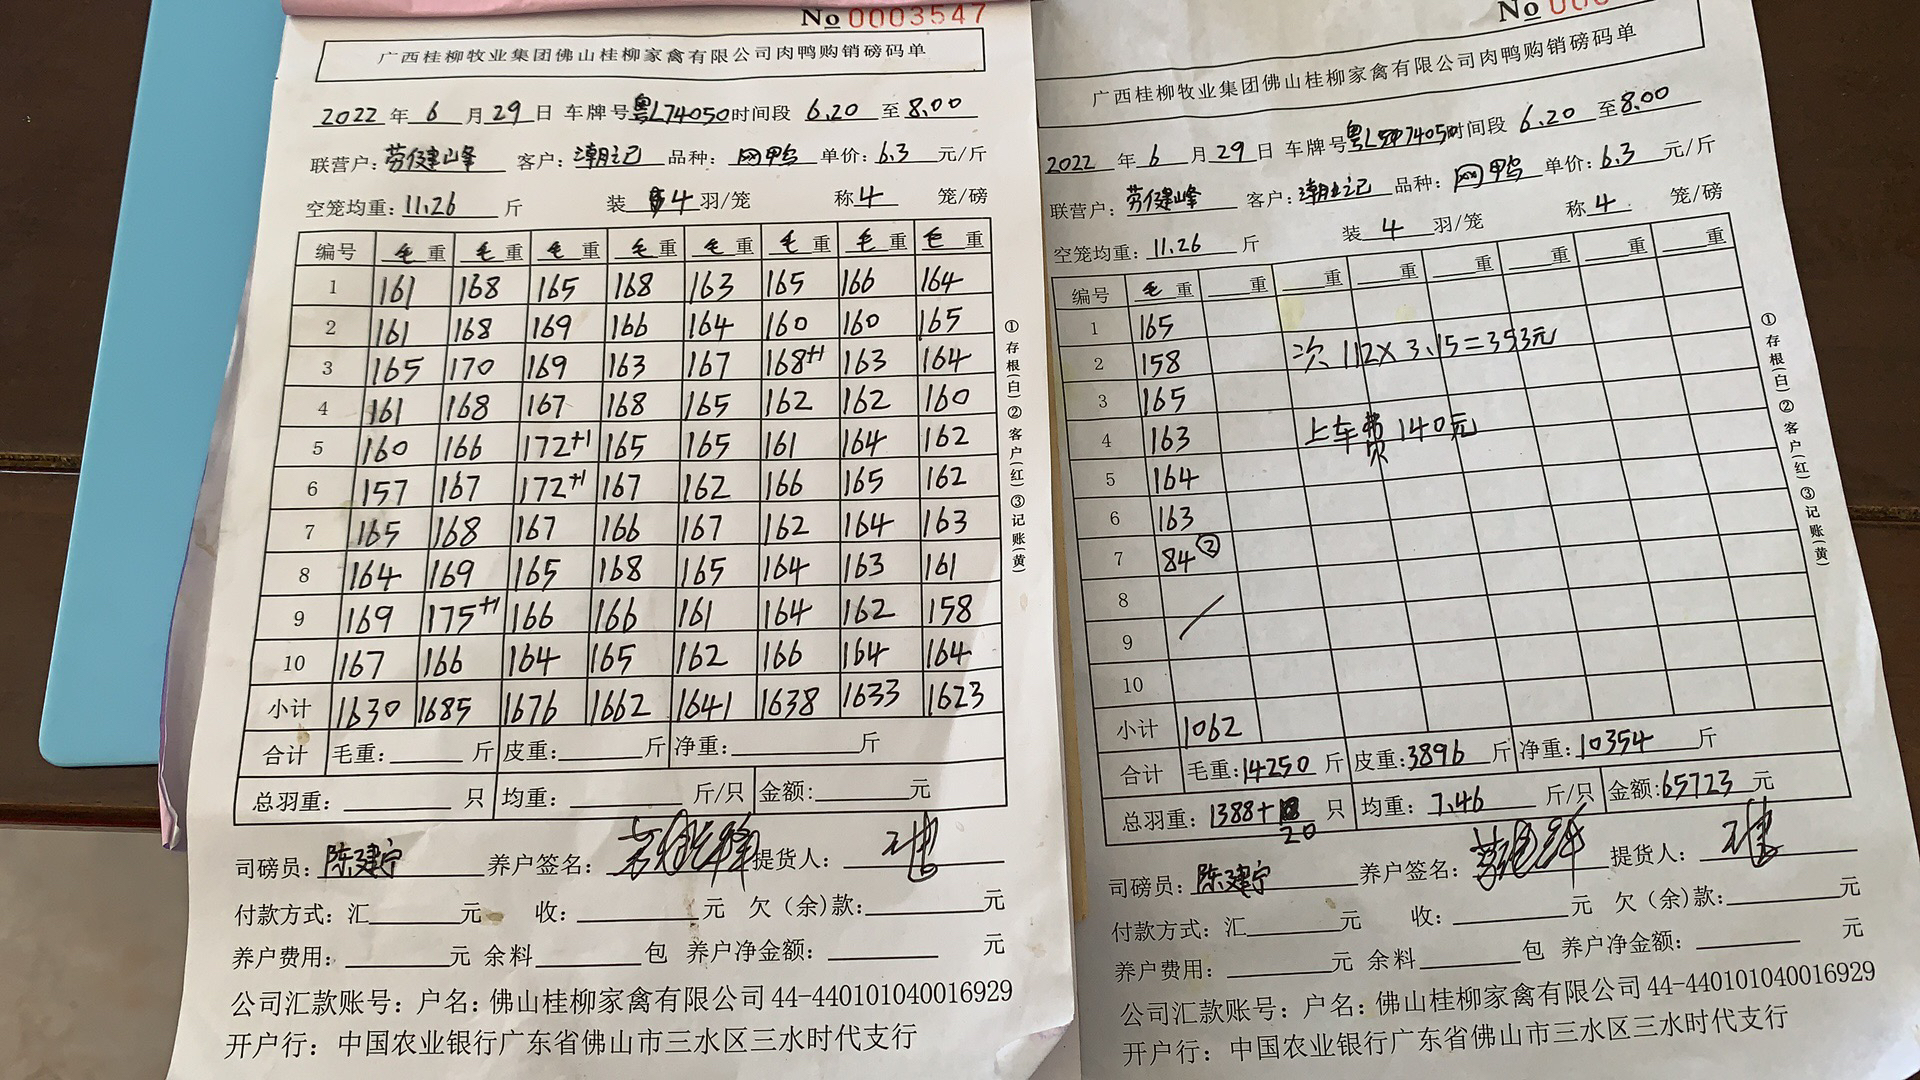 No 0003547
广西桂柳牧业集团佛山桂柳家禽有限公司肉鸭购销磅码单
2022 年 6 月 29 日 车牌号 粤L74050 时间段 6.20 至 8.00
联营户: 劳健峰 客户: 潮记 品种: 网鸭 单价: 6.3 元/斤
空笼均重: 11.26 斤 装 4 羽/笼 称 4 笼/磅
编号 毛重 毛重 毛重 毛重 毛重 毛重 毛重 毛重
1 161 168 165 168 163 165 166 164
2 161 168 169 166 164 160 160 165
3 165 170 169 163 167 168+1 163 164
4 161 168 167 168 165 162 162 160
5 160 166 172+1 165 165 161 164 162
6 157 167 172+1 167 162 166 165 162
7 165 168 167 166 167 162 164 163
8 164 169 165 168 165 164 163 161
9 169 175+1 166 166 161 164 162 158
10 167 166 164 165 162 166 164 164
小计 1630 1685 1676 1662 1641 1638 1633 1623
合计 毛重: 斤 皮重: 斤 净重: 斤
总羽重: 只 均重: 斤/只 金额: 元
司磅员: 陈建宁 养户签名: 提货人:
付款方式: 汇 元 收: 元 欠(余)款: 元
养户费用: 元 余料 包 养户净金额: 元
公司汇款账号: 户名: 佛山桂柳家禽有限公司 44-440101040016929
开户行: 中国农业银行广东省佛山市三水区三水时代支行
①存根(白)②客户(红)③记账(黄)
No 000
广西桂柳牧业集团佛山桂柳家禽有限公司肉鸭购销磅码单
2022 年 6 月 29 日 车牌号 粤L74050 时间段 6.20 至 8.00
联营户: 劳健峰 客户: 潮记 品种: 网鸭 单价: 6.3 元/斤
空笼均重: 11.26 斤 装 4 羽/笼 称 4 笼/磅
编号 毛重 重 重 重 重 重 重 重
1 165
2 158 次 112×3.15=353元
3 165
4 163 上车费 140元
5 164
6 163
7 84②
8
9
10
小计 1062
合计 毛重: 14250 斤 皮重: 3896 斤 净重: 10354 斤
总羽重: 1388+20 只 均重: 7.46 斤/只 金额: 65723 元
司磅员: 陈建宁 养户签名: 提货人:
付款方式: 汇 元 收: 元 欠(余)款: 元
养户费用: 元 余料 包 养户净金额: 元
公司汇款账号: 户名: 佛山桂柳家禽有限公司 44-440101040016929
开户行: 中国农业银行广东省佛山市三水区三水时代支行
①存根(白)②客户(红)③记账(黄)